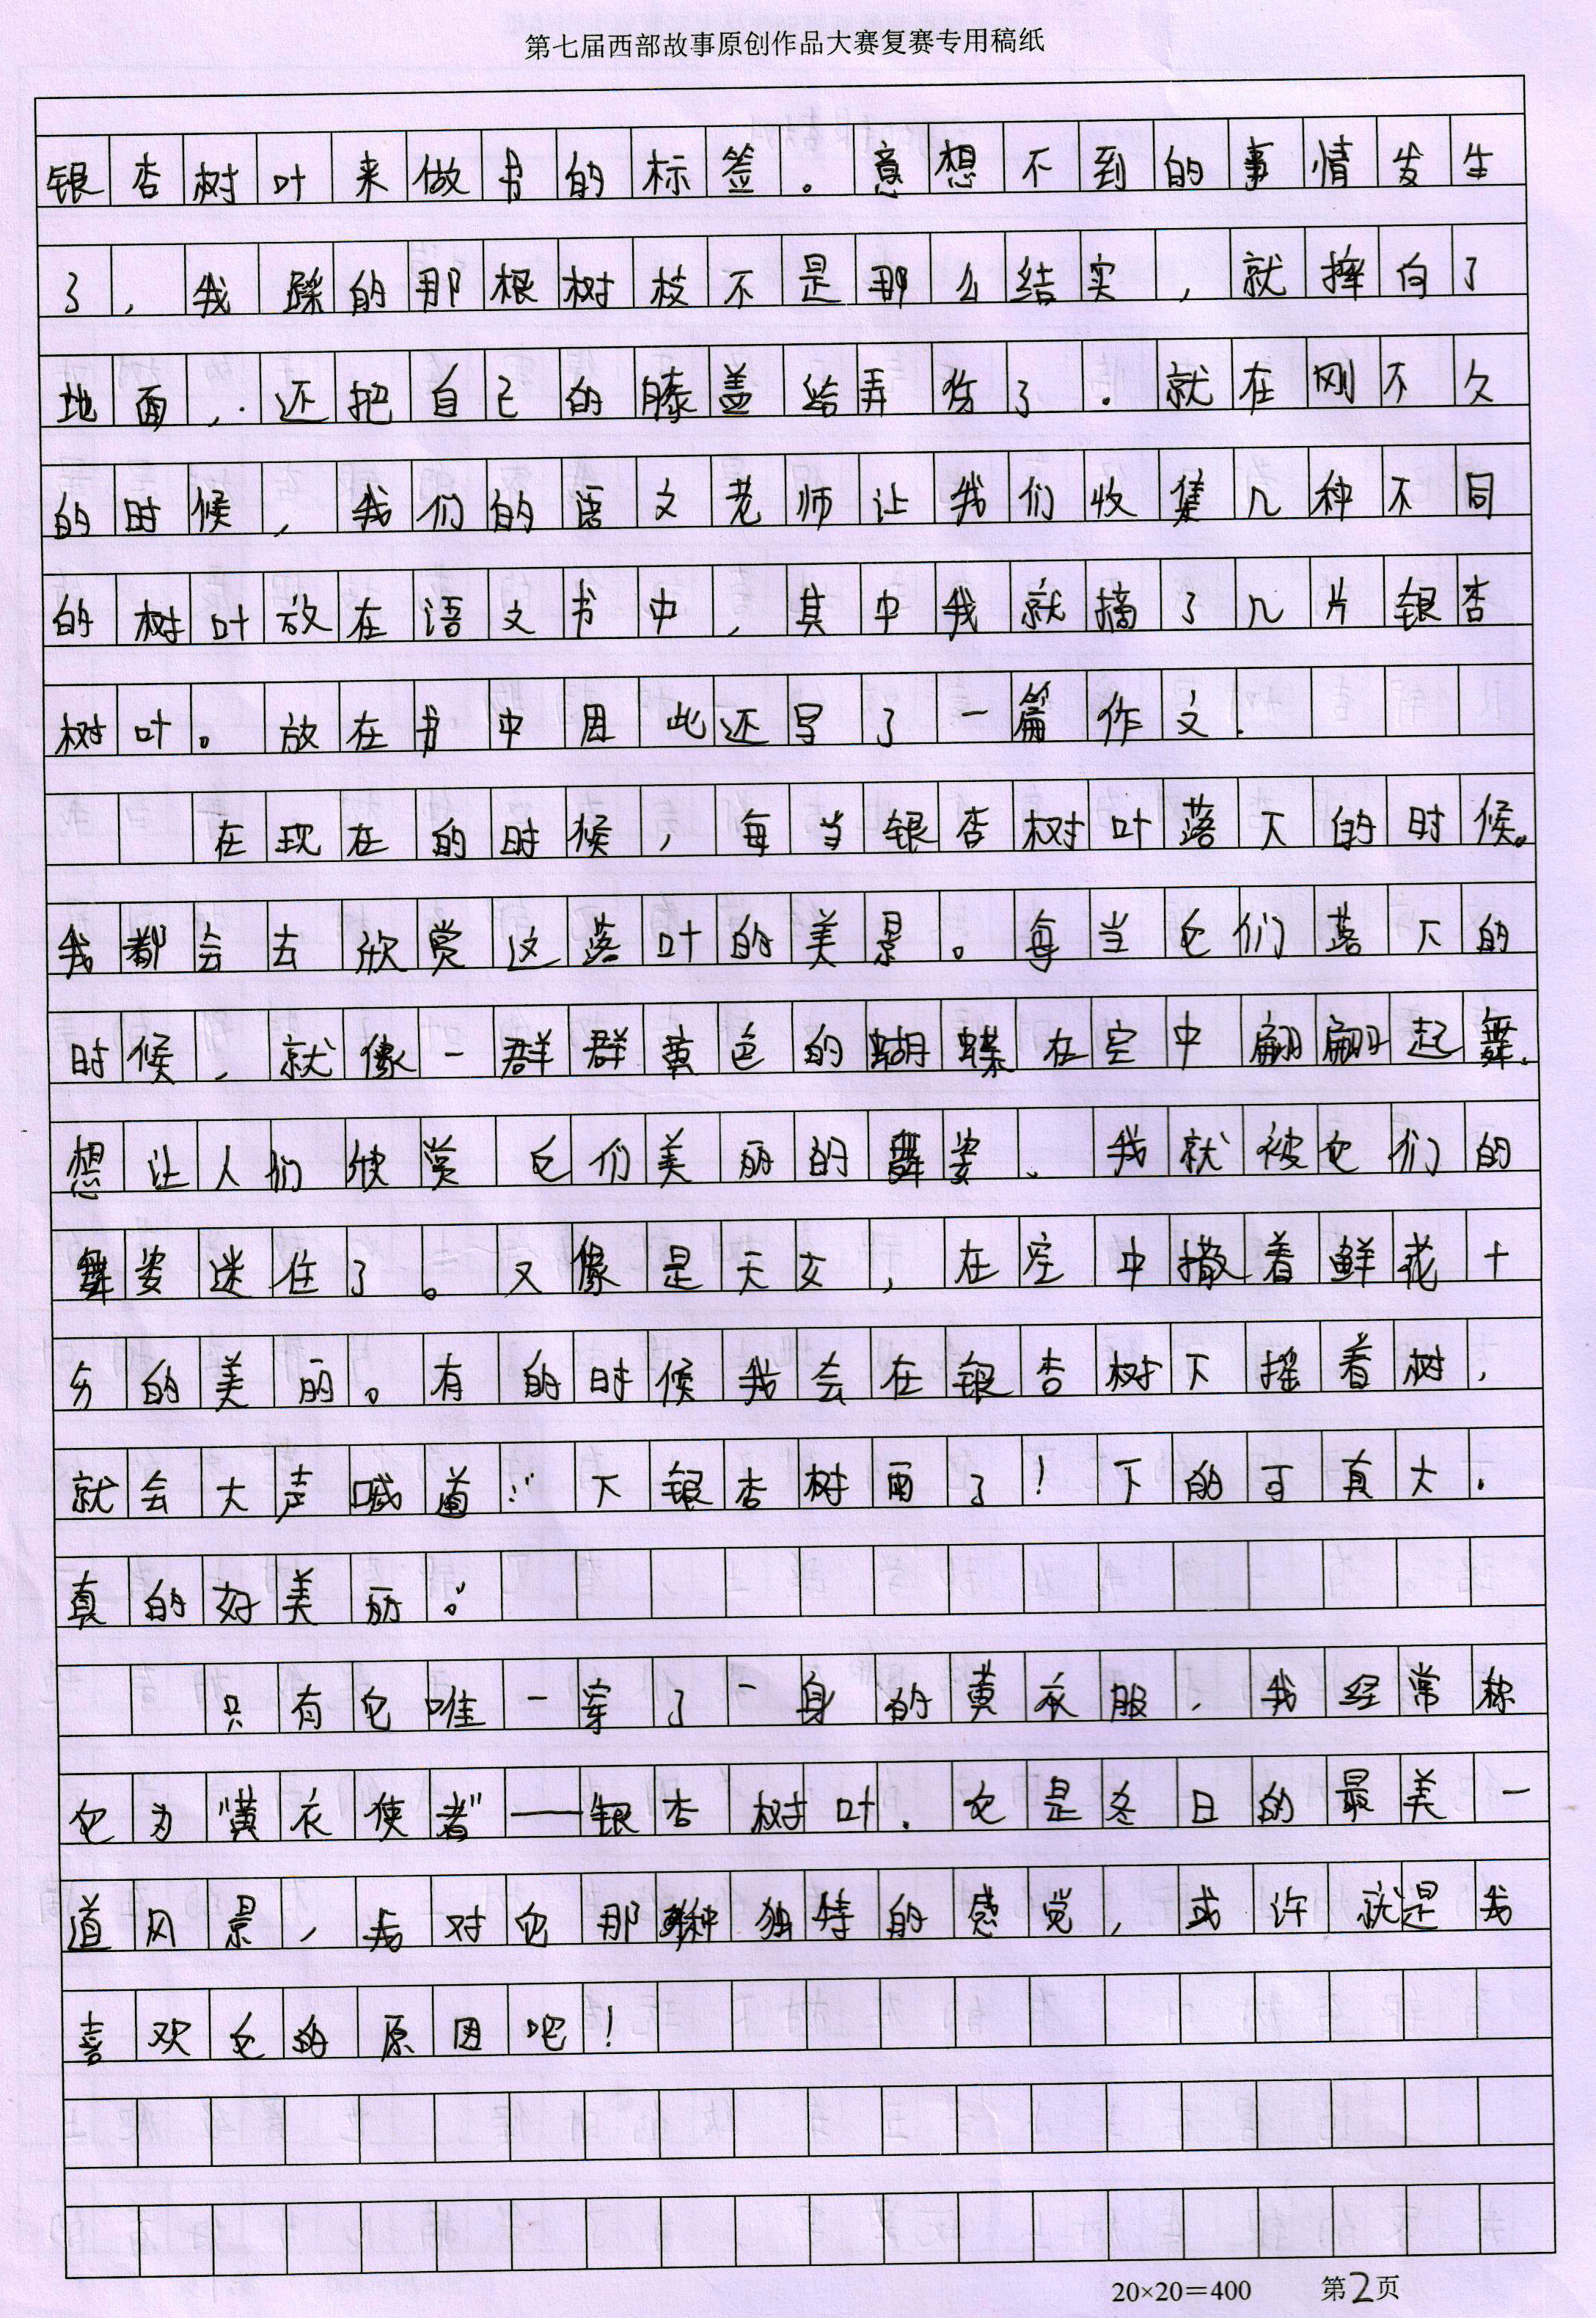 第七届西部故事原创作品大赛复赛专用稿纸
银杏树叶来做书的标签。意想不到的事情发生
了，我踩的那根树枝不是那么结实，就摔向了
地面，还把自己的膝盖给弄伤了．就在刚不久
的时候，我们的语文老师让我们收集几种不同
的树叶放在语文书中，其中我就摘了几片银杏
树叶。放在书中因此还写了一篇作文．
在现在的时候，每当银杏树叶落下的时候。
我都会去欣赏这落叶的美景。每当它们落下的
时候，就像一群群黄色的蝴蝶在空中翩翩起舞．
想让人们欣赏它们美丽的舞姿、我就被它们的
舞姿迷住了。又像是天女，在空中撒着鲜花十
分的美丽。有的时候我会在银杏树下摇着树，
就会大声喊道：“下银杏树雨了！下的可真大．
真的好美丽。”
只有它唯一穿了一身的黄衣服，我经常称
它为“黄衣使者”——银杏树叶．它是冬日的最美一
道风景，我对它那种独特的感觉，或许就是我
喜欢它的原因吧！
20×20＝400 第2页